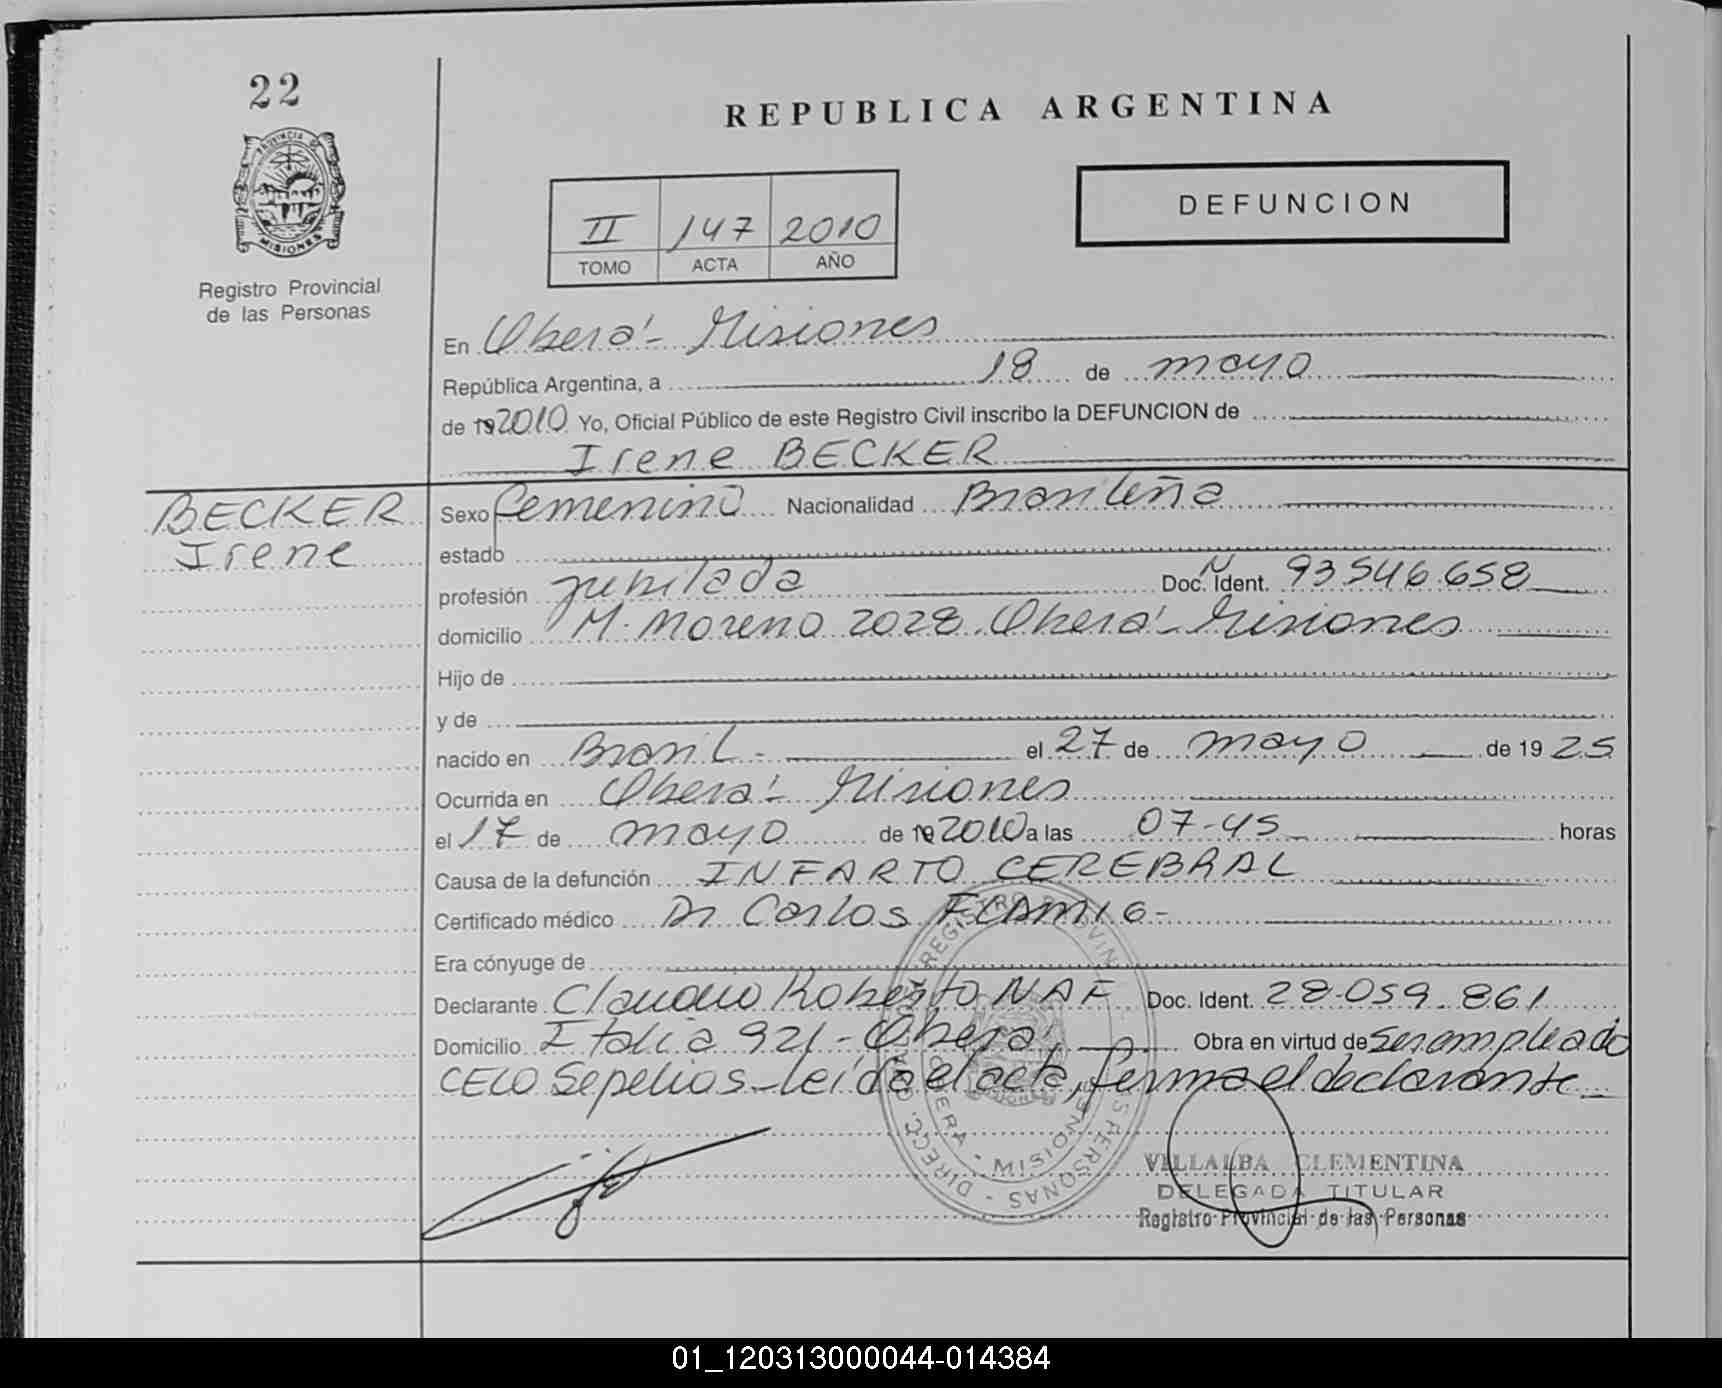 22
REPUBLICA ARGENTINA
PROVINCIA DE
MISIONES
Registro Provincial
de las Personas
DEFUNCION
II 147 2010
TOMO ACTA AÑO
En Oberá - Misiones
República Argentina, a 18 de mayo
de 19 2010 Yo, Oficial Público de este Registro Civil inscribo la DEFUNCION de
Irene BECKER
BECKER
Irene
Sexo femenino Nacionalidad Brasileña
estado
profesión jubilada Doc. N Ident. 93.546.658
domicilio M. Moreno 2028. Oberá - Misiones
Hijo de
y de
nacido en Brasil - el 27 de mayo de 1925
Ocurrida en Oberá - Misiones
el 17 de mayo de 19 2010 a las 07-45 horas
Causa de la defunción INFARTO CEREBRAL
Certificado médico Dr. Carlos FLAMIG -
Era cónyuge de
Declarante Claudio Roberto NAF Doc. Ident. 28.059.861
Domicilio Italia 921 - Oberá Obra en virtud de ser empleado
CELO Sepelios - leída el acta, firma el declarante
DIRECC. REGISTRO PROVINCIAL DE LAS PERSONAS
OBERA - MISIONES
VILLALBA CLEMENTINA
DELEGADA TITULAR
Registro Provincial de las Personas
01_120313000044-014384